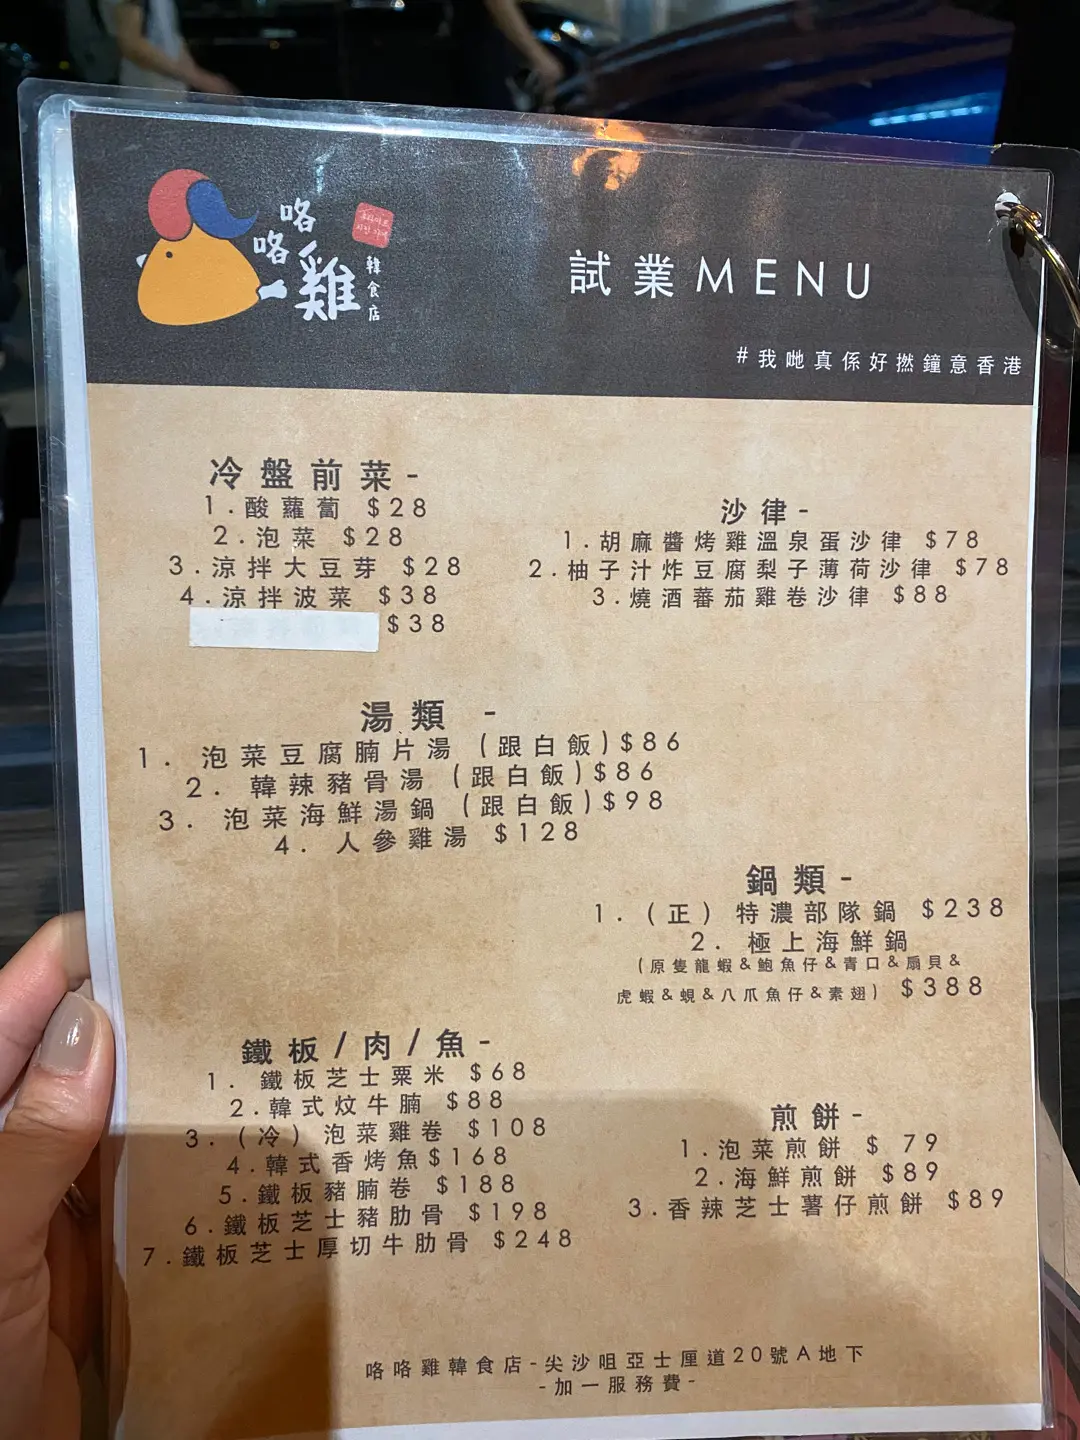 咯咯一雞
韓食店
試業MENU
#我哋真係好撚鐘意香港
冷盤前菜-
1.酸蘿蔔 $28
2.泡菜 $28
3.涼拌大豆芽 $28
4.涼拌波菜 $38
$38
沙律-
1.胡麻醬烤雞溫泉蛋沙律 $78
2.柚子汁炸豆腐梨子薄荷沙律 $78
3.燒酒蕃茄雞卷沙律 $88
湯類 -
1. 泡菜豆腐腩片湯 (跟白飯)$86
2. 韓辣豬骨湯 (跟白飯)$86
3. 泡菜海鮮湯鍋 (跟白飯)$98
4. 人參雞湯 $128
鍋類-
1.(正) 特濃部隊鍋 $238
2. 極上海鮮鍋
(原隻龍蝦&鮑魚仔&青口&扇貝&
虎蝦&蜆&八爪魚仔&素翅) $388
鐵板/肉/魚-
1. 鐵板芝士粟米 $68
2.韓式炆牛腩 $88
3.(冷) 泡菜雞卷 $108
4.韓式香烤魚$168
5.鐵板豬腩卷 $188
6.鐵板芝士豬肋骨 $198
7.鐵板芝士厚切牛肋骨 $248
煎餅-
1.泡菜煎餅 $ 79
2.海鮮煎餅 $89
3.香辣芝士薯仔煎餅 $89
咯咯雞韓食店-尖沙咀亞士厘道20號A地下
-加一服務費-